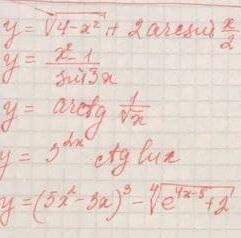 y = √(4-x²) + 2 arcsin x/2
y = (x²-1)/(sin 3x)
y = arctg 1/√x
y = 3^(2x) ctg ln x
y = (5x²-3x)³ - ⁴√(e^(4x-5)+2)